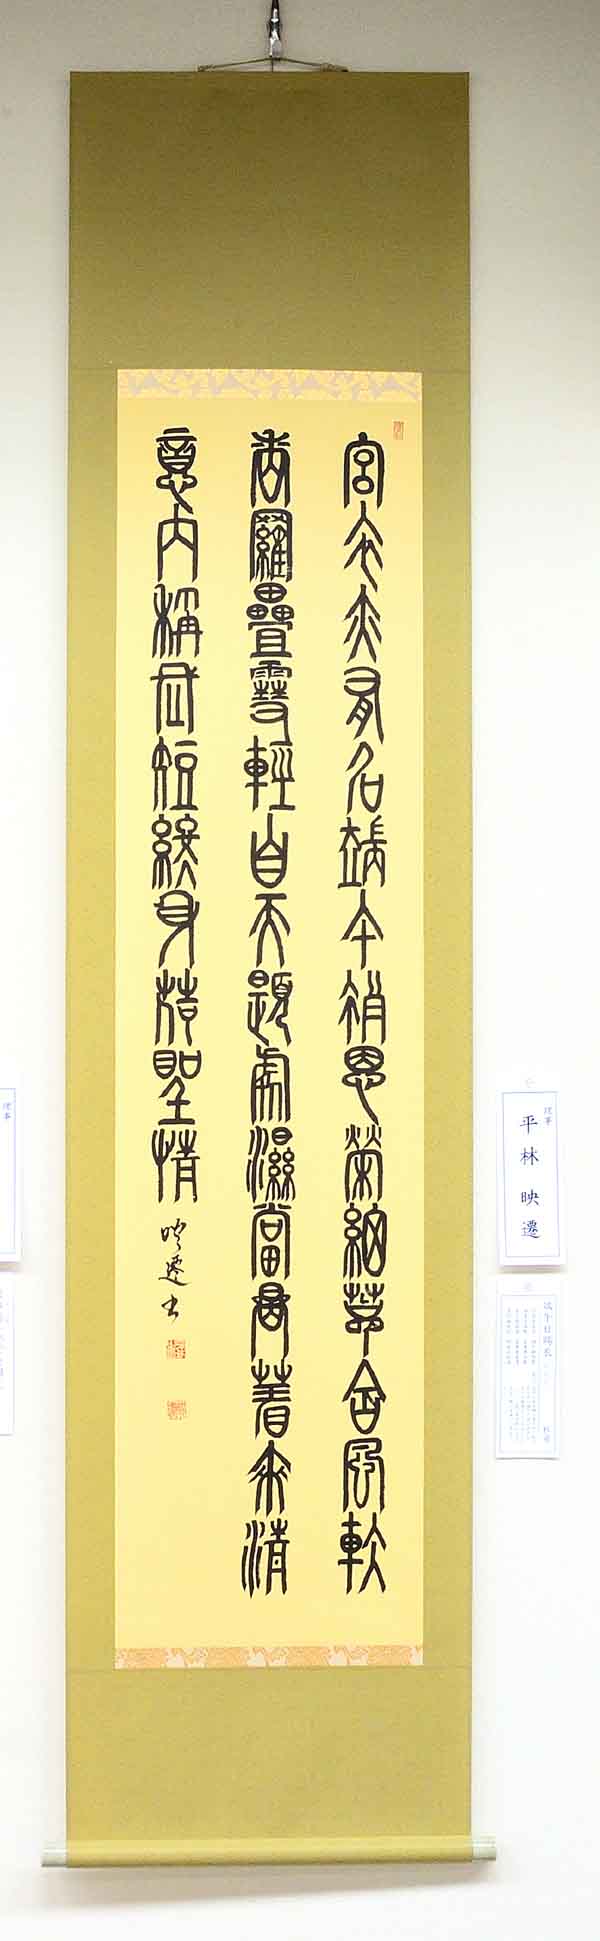 宮衣亦有名端午被恩榮細葛含風軟
香羅疊雪輕自天題處濕當暑著來清
意内稱長短終身荷聖情 映遷書
理事
平林 映遷
端午日賜衣
杜甫
理事